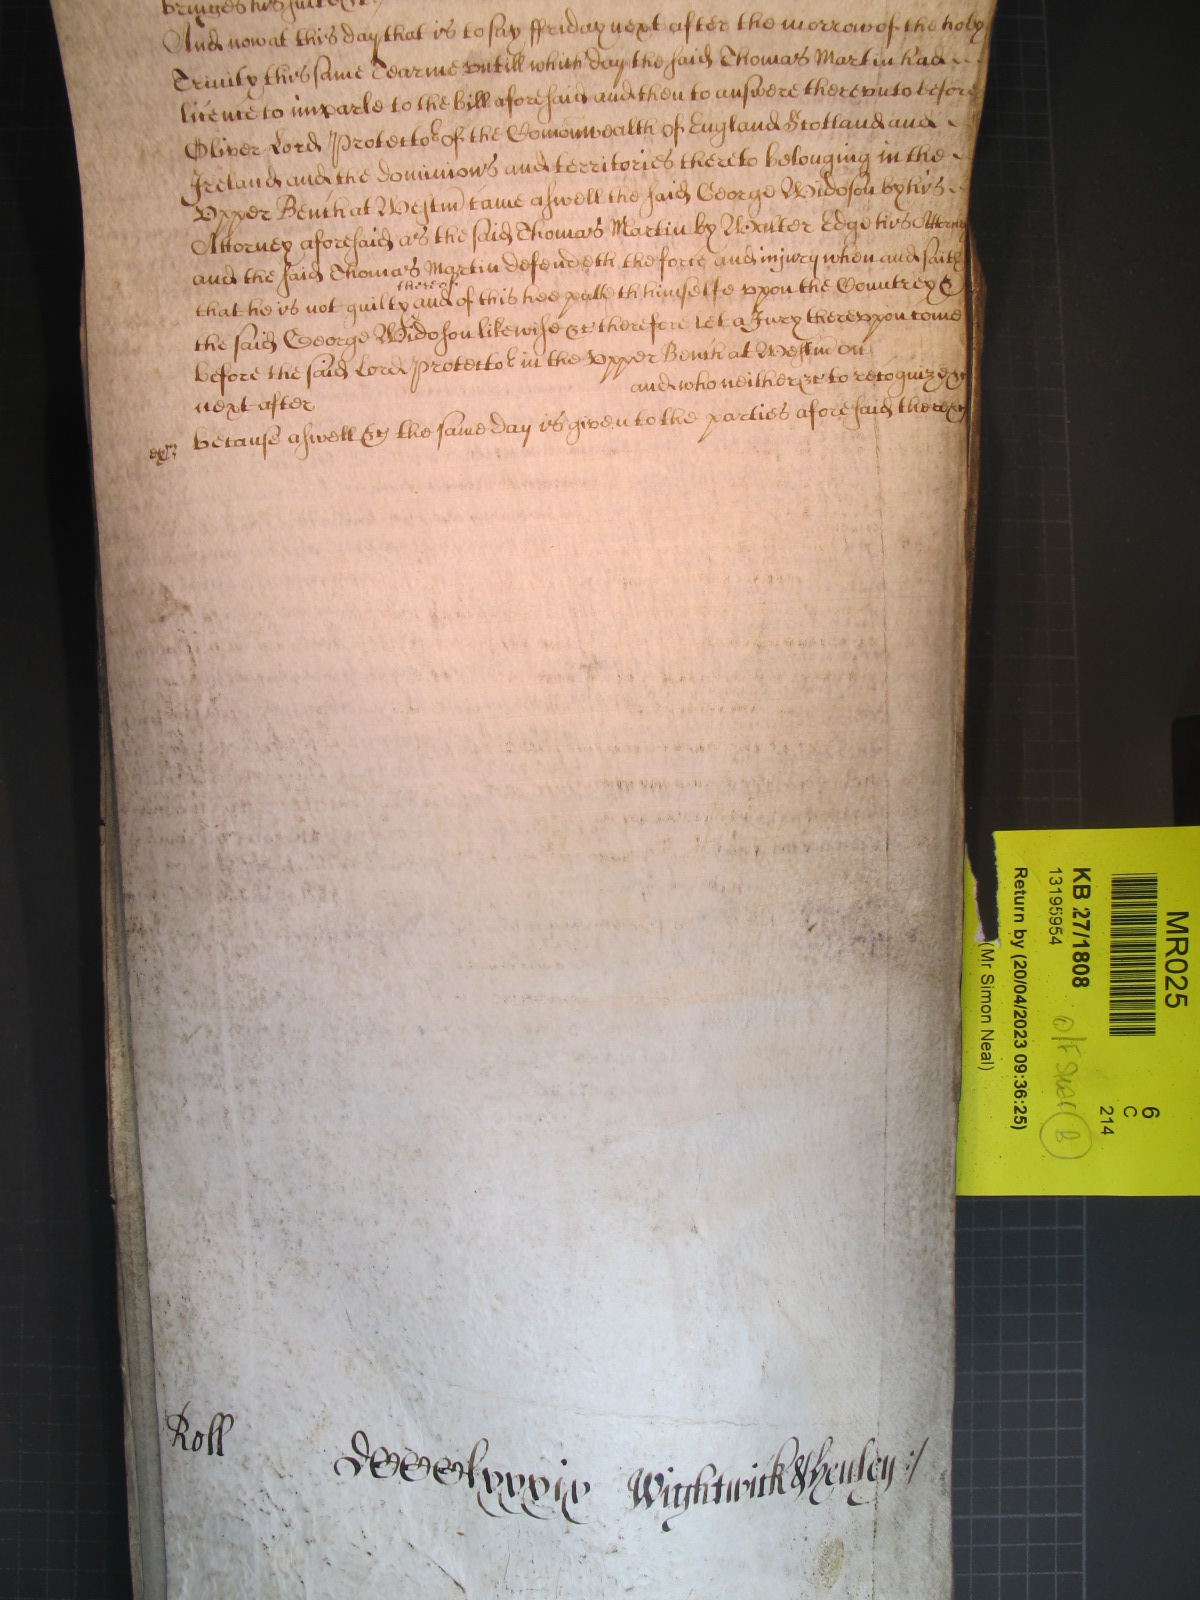 bringes his suite &c
And now at this day that is to say ffriday next after the morrow of the holy
Trinity this same Tearme untill which day the said Thomas Martin had
licence to imparle to the bill aforesaid and then to answere thereunto before
Oliver Lord Protector of the Comonwealth of England Scotland and
Ireland and the dominions and territories thereto belonging in the
Upper Bench at Westm came aswell the said George Widoson by his
Attorney aforesaid as the said Thomas Martin by Walter Edge his Attorney
and the said Thomas Martin defendeth the force and injury when and saith
thereof
that he is not guilty and of this hee putteth himselfe uppon the Countrey &
the said George Widoson likewise &c therefore let a Jury thereuppon come
before the said Lord Protector in the Upper Bench at Westm on
next after and who neither &c to recognize &c
because aswell &c the same day is given to the parties aforesaid there &c
Roll
Wightwick & Henley
MR025
6
C
214
KB 27/1808
13195954
Return by (20/04/2023 09:36:25)
(Mr Simon Neal)
B